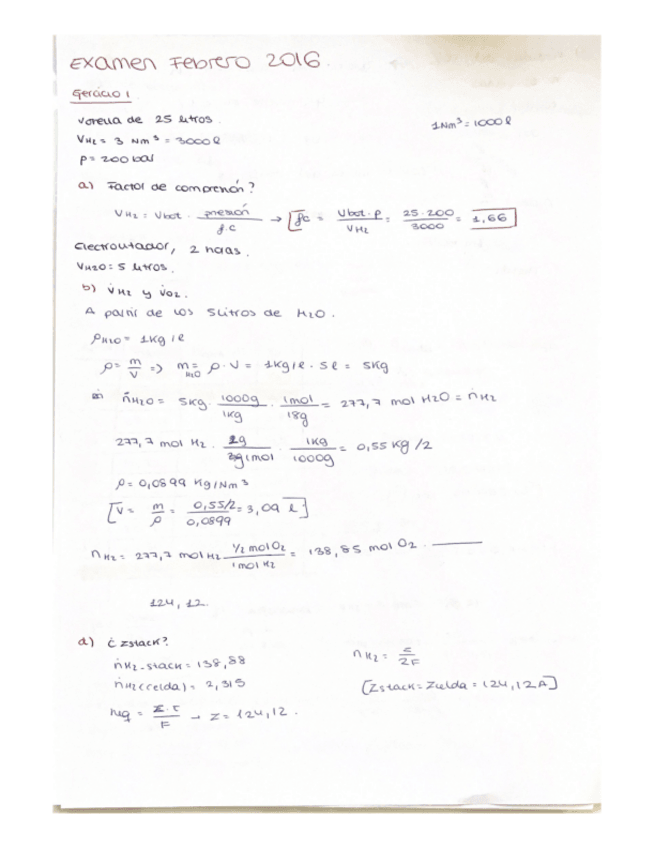 Examen Febrero 2016.
Ejercicio 1
Botella de 25 litros.
1Nm³ = 1000 l
V_H2 = 3 Nm³ = 3000 l
P = 200 bar
a) Factor de compresión?
V_H2 = Vbot · presión / f.c → [fc = Vbot·P / V_H2 = 25·200 / 3000 = 1,66]
Electrolizador, 2 horas.
V_H2O = 5 litros.
b) V̇_H2 y V̇_O2.
A partir de los 5 litros de H2O.
ρ_H2O = 1Kg/l
ρ = m/V => m_H2O = ρ·V = 1Kg/l · 5l = 5Kg
ṅ_H2O = 5Kg · 1000g/1Kg · 1mol/18g = 277,7 mol H2O = ṅ_H2
277,7 mol H2 · 2g/1mol · 1Kg/1000g = 0,55 Kg/2
ρ = 0,0899 Kg/Nm³
[V = m/ρ = 0,55/2 / 0,0899 = 3,09 l]
n_H2 = 277,7 mol H2 · ½ mol O2 / 1 mol H2 = 138,85 mol O2.
124,12.
d) ¿Istack?
ṅ_H2-stack = 138,88
n_H2 = I/2F
ṅ_H2(celda) = 2,315
[Istack = Icelda = 124,12A]
= I·t / F → I = 124,12.